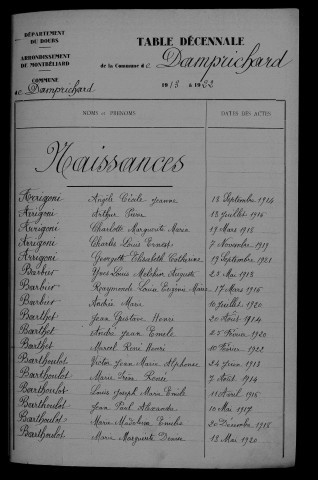 DÉPARTEMENT
DU DOUBS
ARRONDISSEMENT
DE MONTBÉLIARD
COMMUNE
de Damprichard
TABLE DÉCENNALE
de la Commune de Damprichard
1913 à 1922
NOMS et PRÉNOMS
DATES DES ACTES
Naissances
Arrigoni Angèle Cécile Jeanne 13 Septembre 1914
Arrigoni Arthur Pierre 13 Juillet 1916
Arrigoni Charlotte Marguerite Maria 19 Mars 1918
Arrigoni Charles Louis Ernest 7 Novembre 1919
Arrigoni Georgette Elisabeth Catherine 19 Septembre 1921
Barbier Yves Louis Melchior Auguste 23 Mai 1913
Barbier Raymonde Louise Eugénie Marie 17 Mars 1916
Barbier Andrée Marie 10 Juillet 1920
Barthod Jean Gustave Henri 20 Août 1914
Barthod André Jean Emile 25 Février 1920
Barthod Marcel René Henri 10 Février 1922
Barthoulot Victor Jean Marie Alphonse 24 Juin 1913
Barthoulot Marie Renée 7 Août 1914
Barthoulot Louis Joseph Marie Emile 11 Avril 1916
Barthoulot Jean Paul Alexandre 10 Mai 1917
Barthoulot Marie Madeleine 20 Décembre 1918
Barthoulot Marie Marguerite Denise 18 Mai 1920